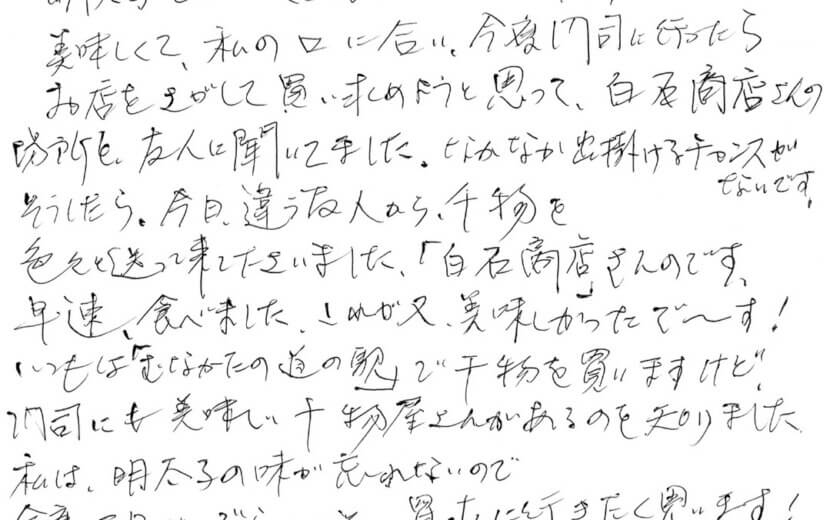 美味しくて、私の口に合い、今度門司に行ったら
お店をさがして買い求めようと思って、白石商店さんの
場所を、友人に聞いてました。なかなか出掛けるチャンスが
ないです。
そうしたら、今日、違う友人から、干物を
色々と送って来てださいました、「白石商店」さんのです、
早速、食べました、これが又、美味しかったで〜す!
いつもは「むなかたの道の駅」で干物を買いますけど、
門司にも美味しい干物屋さんがあるのを知りました
私は、明太子の味が忘れれないので
買いに行きたく思います!